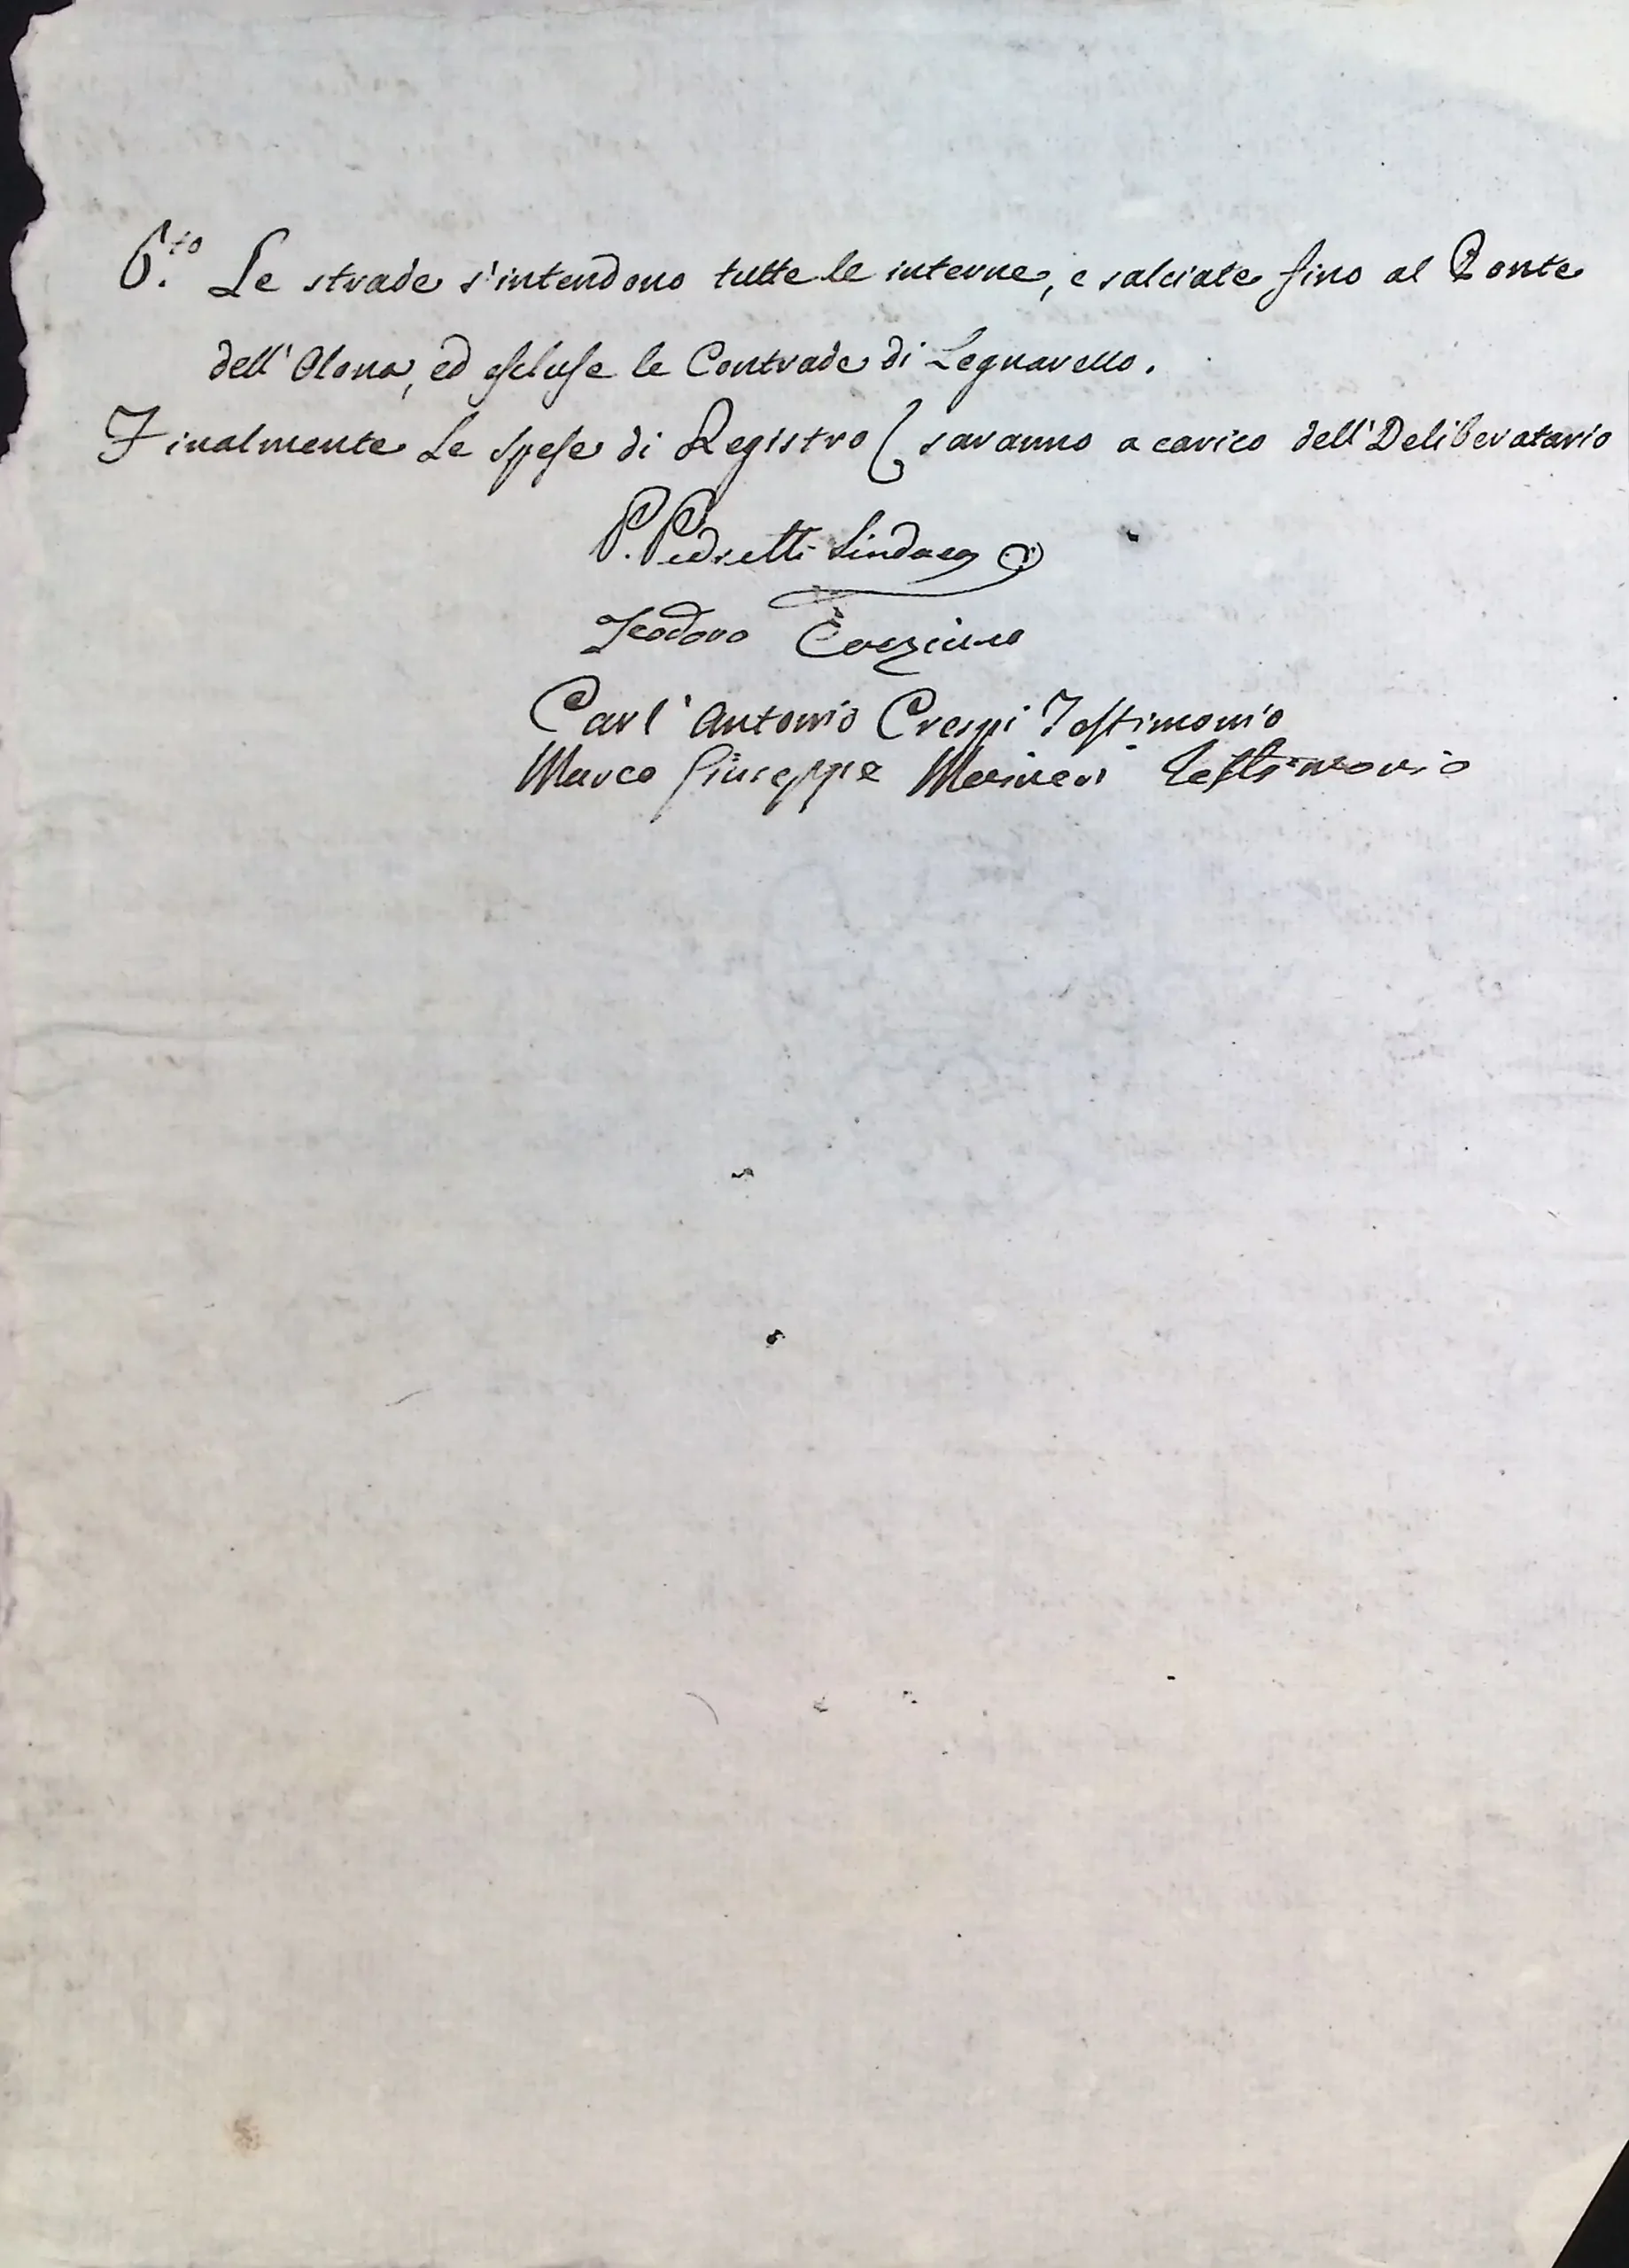 6.to Le strade s'intendono tutte le interne, e salciate fino al Ponte
dell'Olona, ed escluse le Contrade di Legnarello.
Finalmente Le Spese di Registro ( saranno a carico dell'Deliberatario
P. Pedretti Sindaco
Teodoro
Carl'Antonio Crespi Testimonio
Marco Giuseppe Testimonio